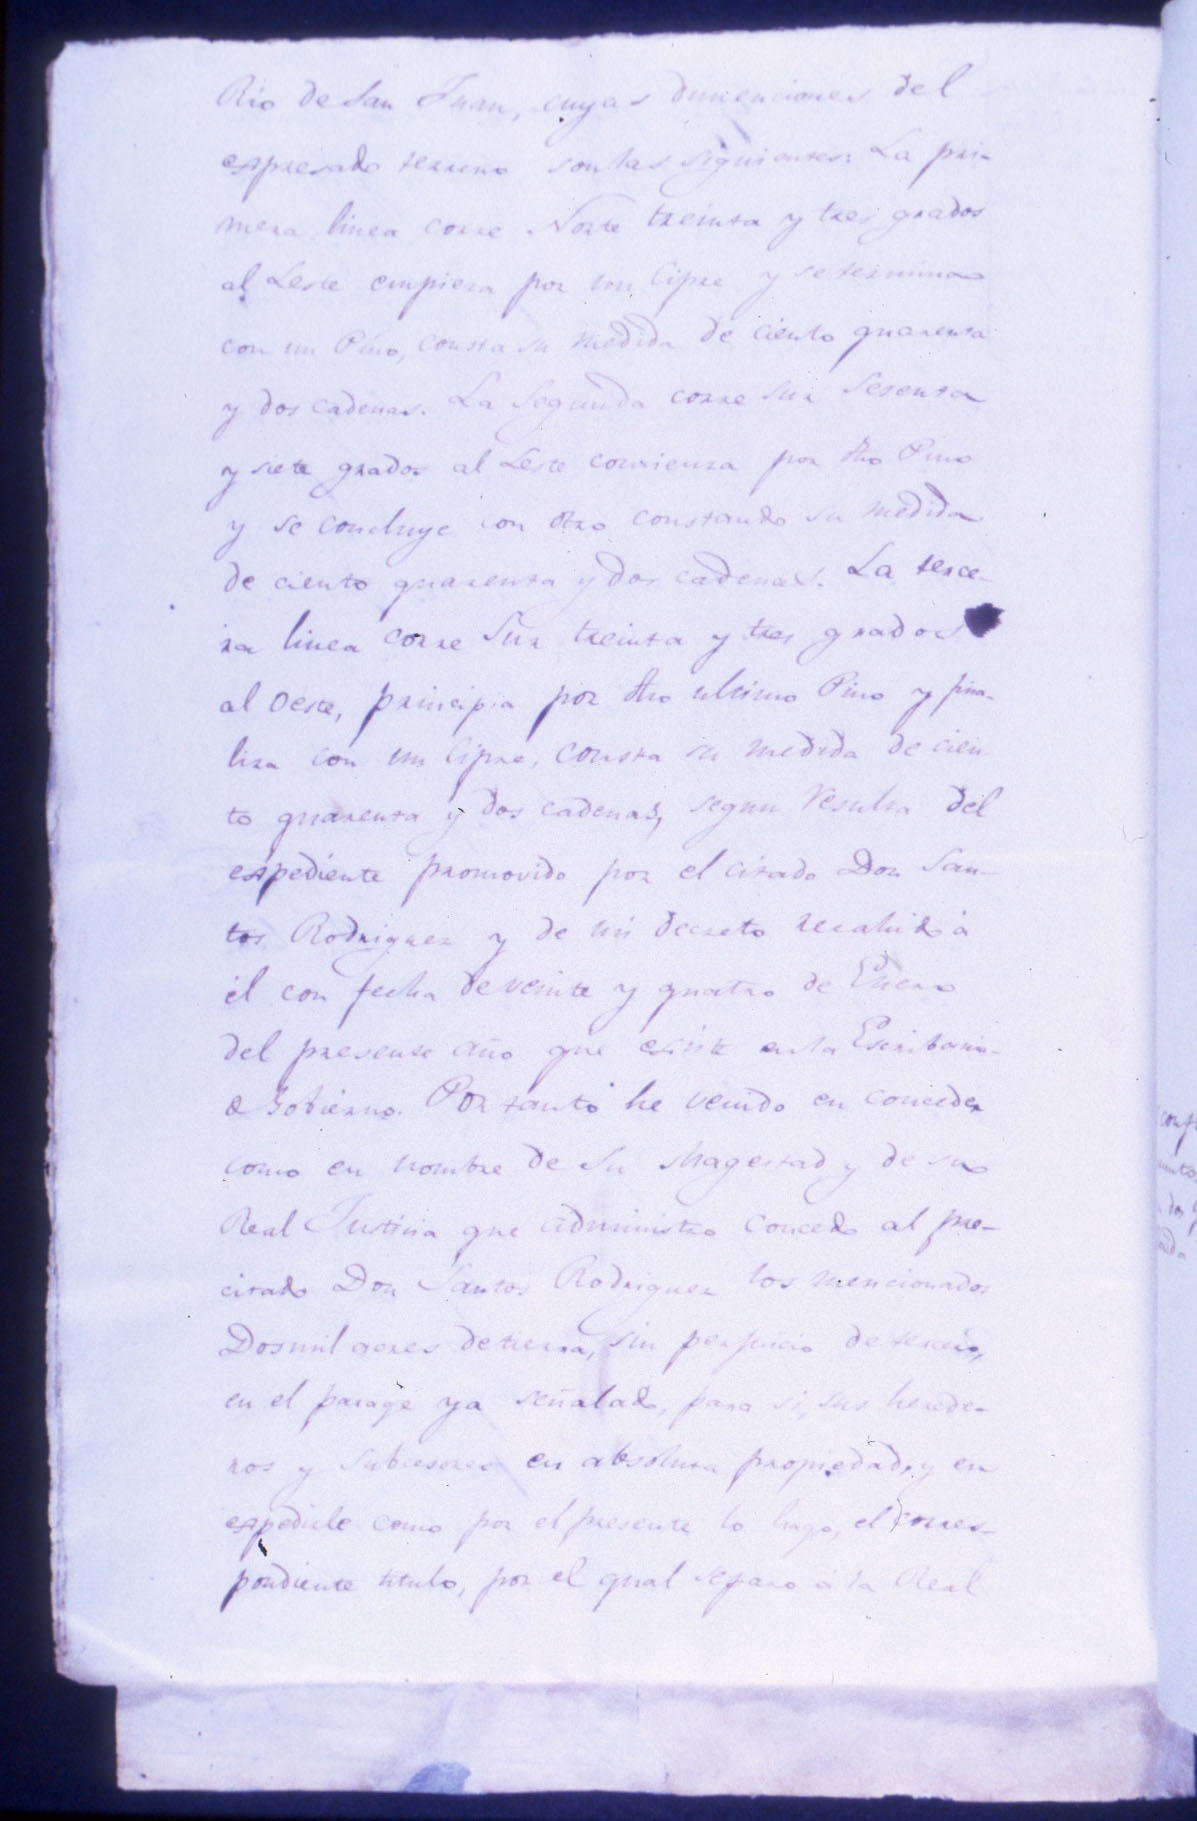 Rio de San Juan, cuyas dimenciones del
espresado terreno son las siguientes: La pri-
mera linea corre Norte treinta y tres grados
al Leste empieza por un Cipre y se termina
con un Pino, consta su medida de ciento quarenta
y dos cadenas. La Segunda corre sur sesenta
y siete grados al Leste comienza por dho Pino
y se concluye con otro constando su medida
de ciento quarenta y dos cadenas. La terce-
ra linea corre Sur treinta y tres grados
al Oeste, principia por dho ultimo Pino y fina-
liza con un Cipre, consta su medida de cien-
to quarenta y dos cadenas, segun resulta del
espediente promovido por el citado Don San-
tos Rodriguez y de mi decreto recahido á
él con fecha de veinte y quatro de Enero
del presente año que esiste en la Escribania
de Gobierno. Por tanto he venido en conceder
como en nombre de Su Magestad y de su
Real Justicia que administro concedo al pre-
citado Don Santos Rodriguez los mencionados
Dos mil acres de tierra, sin perjuicio de tercero,
en el parage ya señalado, para si, sus herede-
ros y subcesores en absoluta propiedad, y en
espedirle como por el presente lo hago, el corres-
pondiente titulo, por el qual separo á la Real